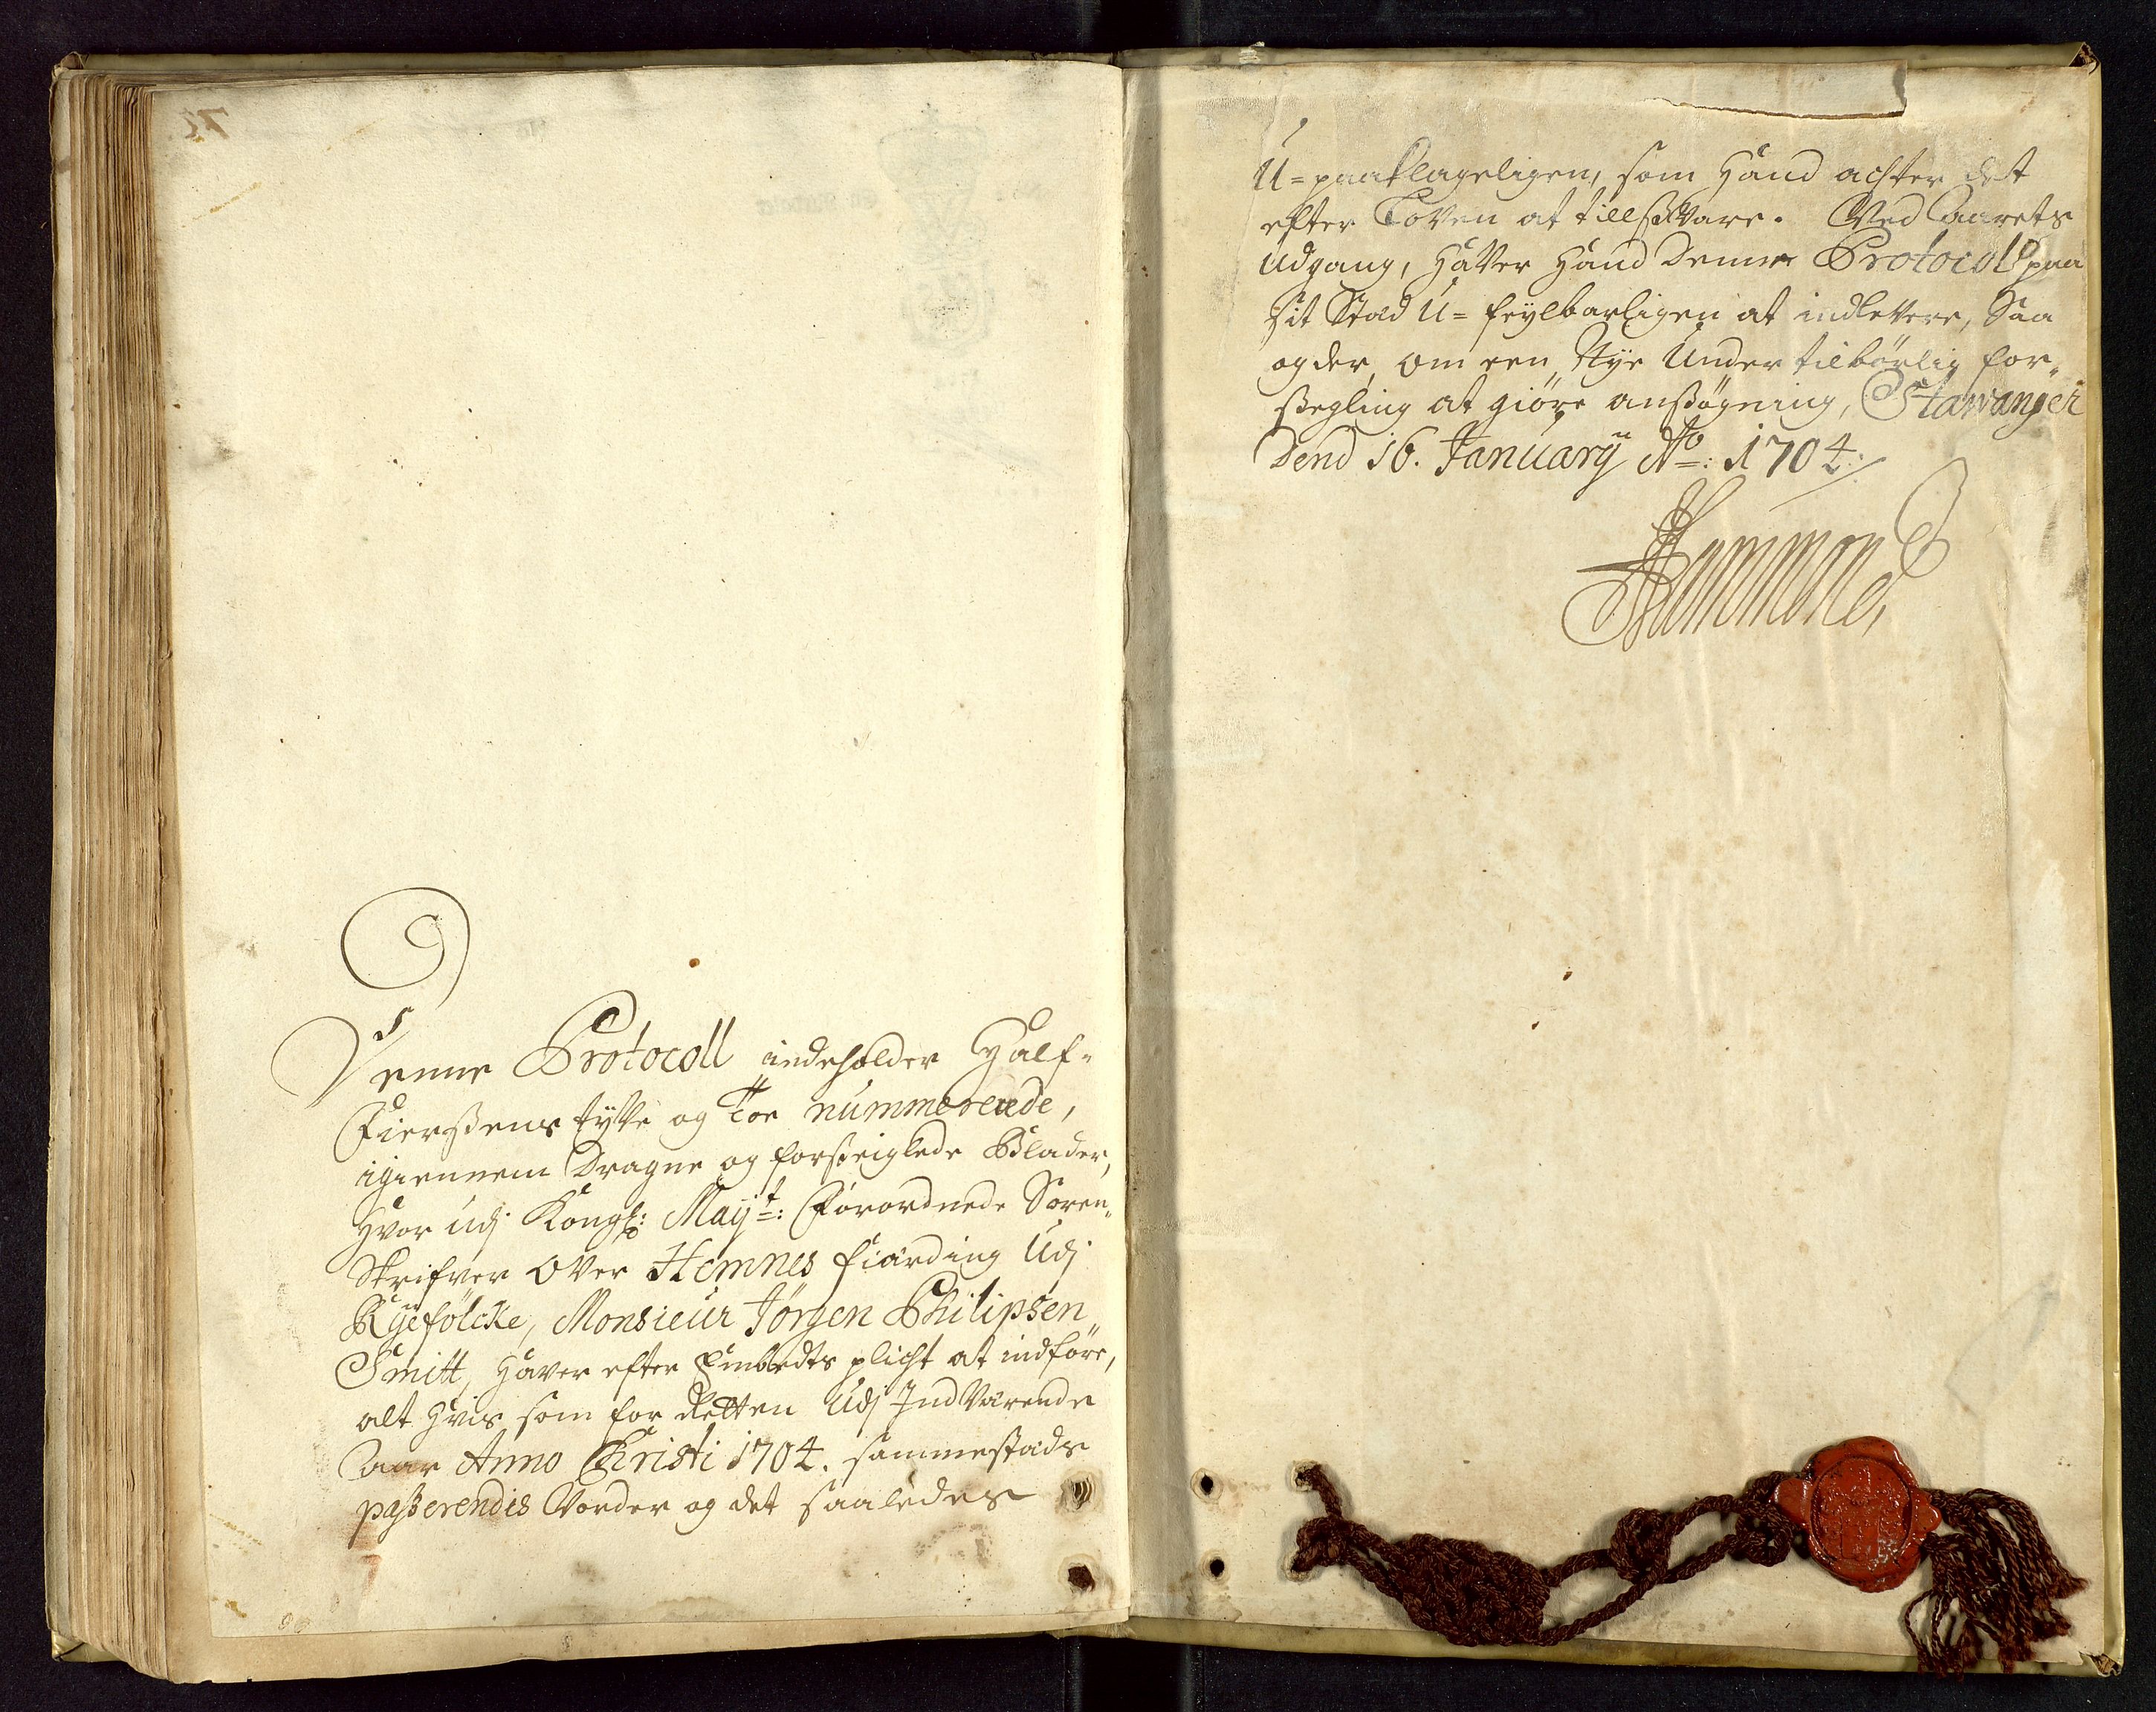 Denne Protocoll indeholder Half-
Fiersens tyffe og Toe nummerede,
igiennem Dragne og forseiglede Blader,
Hvor udj Kongl: Mayt: Forordnede Soren-
Skrifver over Hemnes fiärding Udj
Ryefölcke, Monsieur Jörgen Philipsen
Smitt, haver efter Embedts plicht at indföre,
alt hvis som for Retten Udj IndVärende
Aar Anno Christi 1704. sammestads
passerendis Vorder og det saaledes
U-paaklageligen, som hand achter det
efter Loven at tillsvare. Ved Aarets
Udgang, haver hand Denne Protocol paa
sit Stad U-feylbarligen at indlevere, Saa
og der, om een Nye Under tilbörlig for-
segling at giöre ansögning, Stawanger
Dend 16. January Ao: 1704.
Hammond